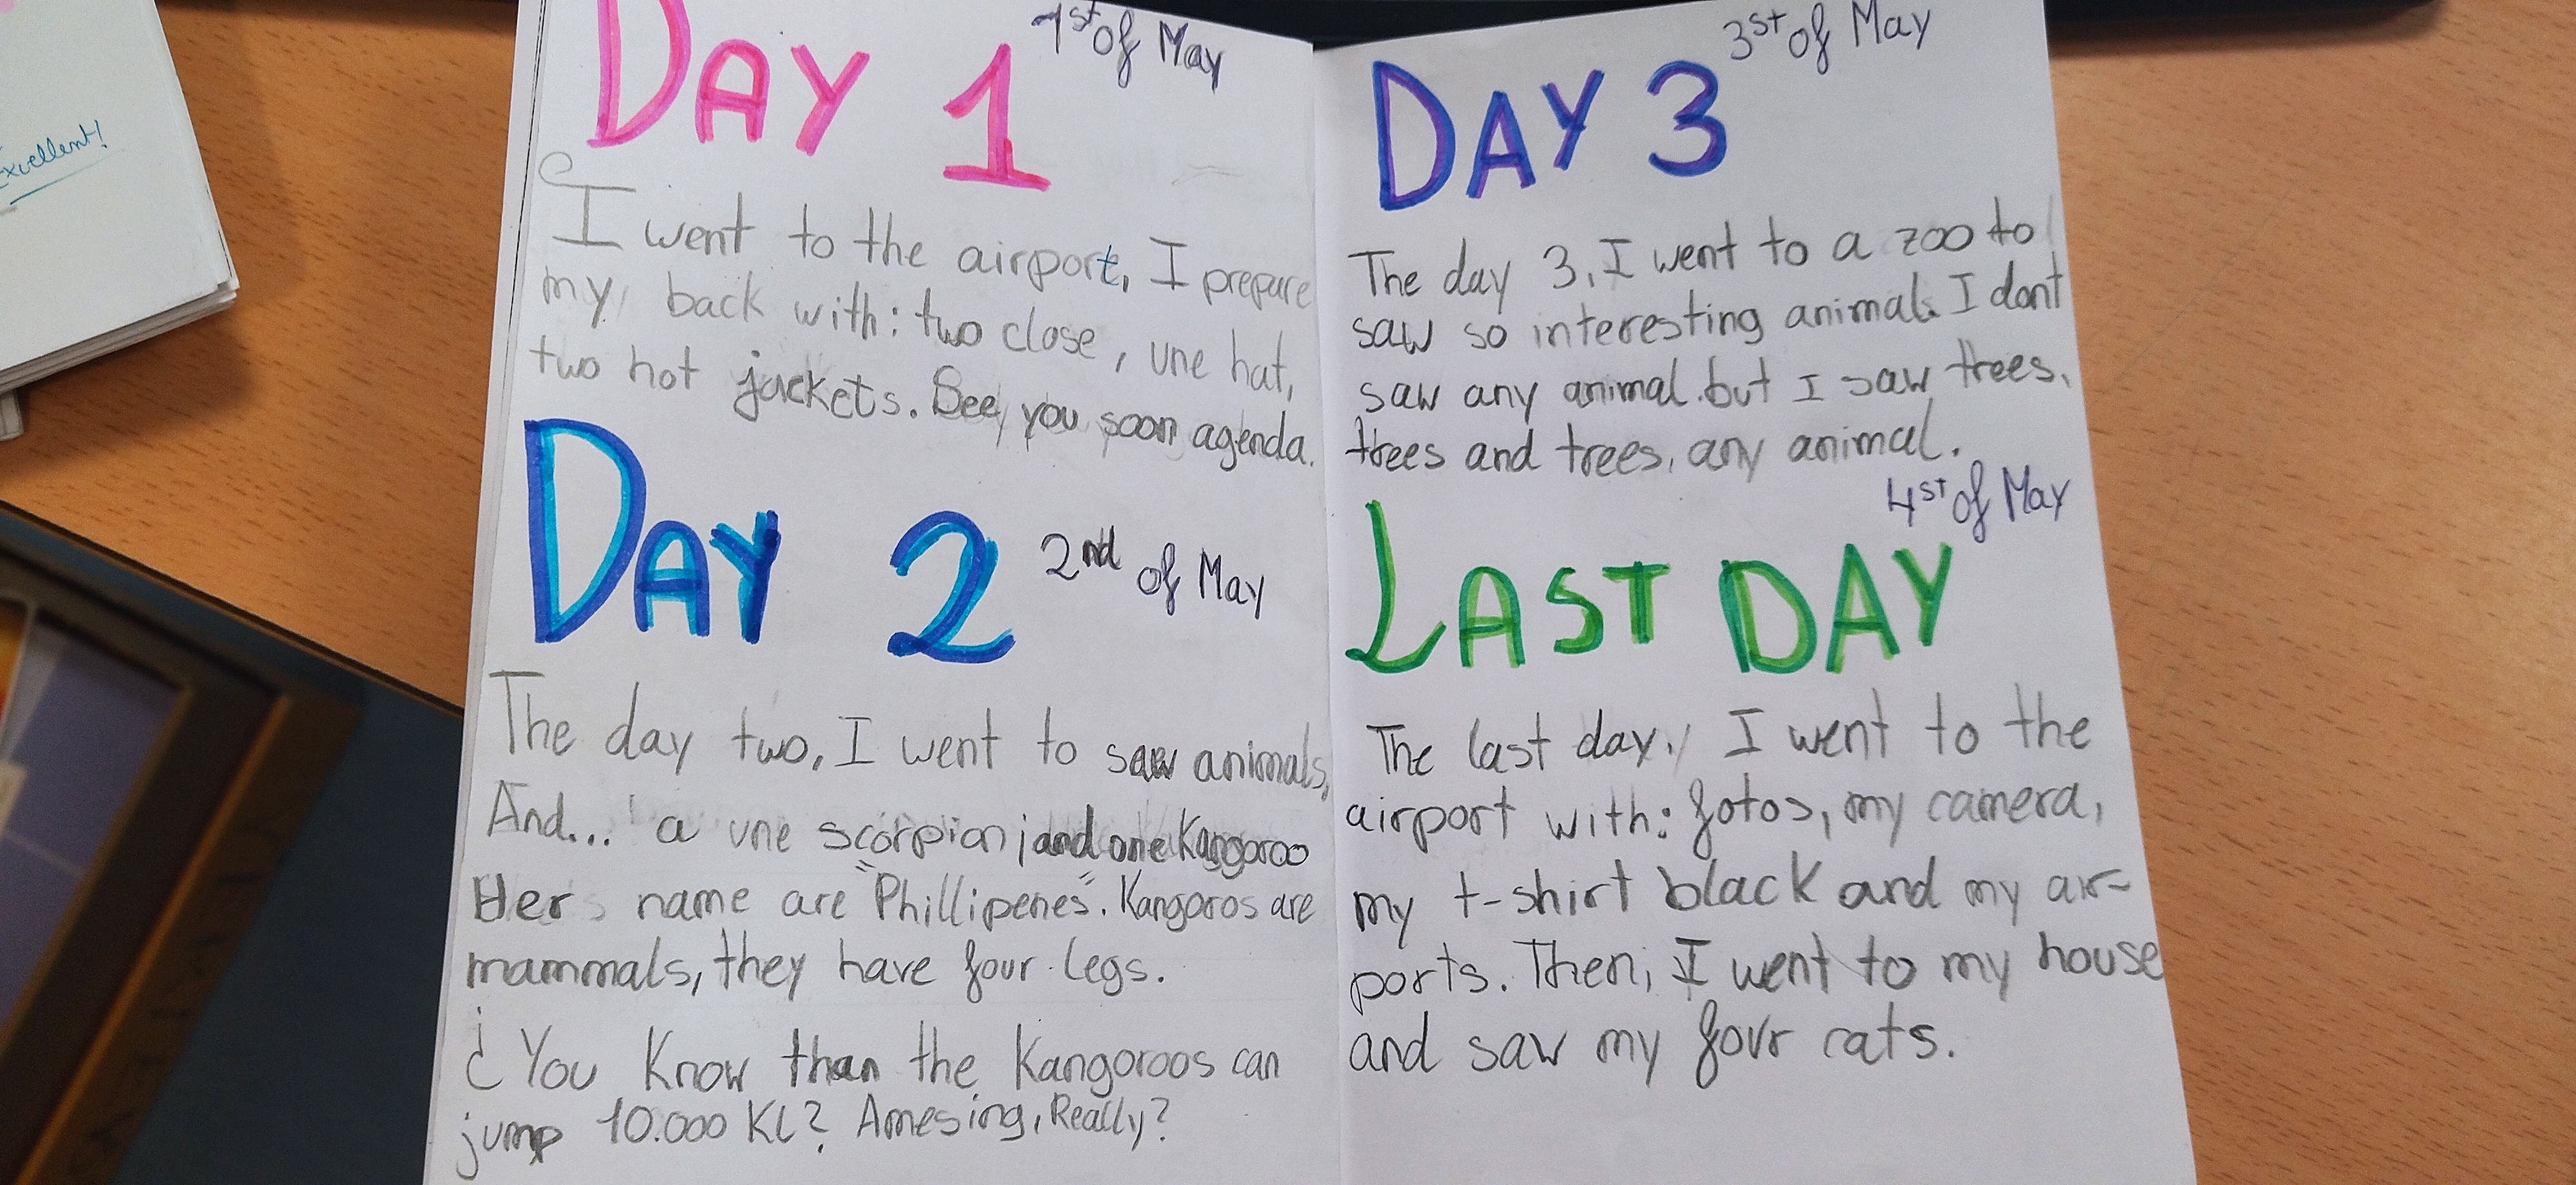 Excellent!
DAY 1 1st of May
I went to the airport, I prepare
my back with: two close, une hat,
two hot jackets. See you soon agenda.
DAY 2 2nd of May
The day two, I went to saw animals,
And... a une scorpion and one Kangoroo
Her name are "Phillipenes". Kangoros are
mammals, they have four legs.
¿You Know than the Kangoroos can
jump 10.000 KL? Amesing, Really?
DAY 3 3st of May
The day 3, I went to a zoo to
saw so interesting animals. I dont
saw any animal but I saw trees,
trees and trees, any animal.
4st of May
LAST DAY
The last day, I went to the
airport with: fotos, my camera,
my t-shirt black and my air-
ports. Then, I went to my house
and saw my four cats.